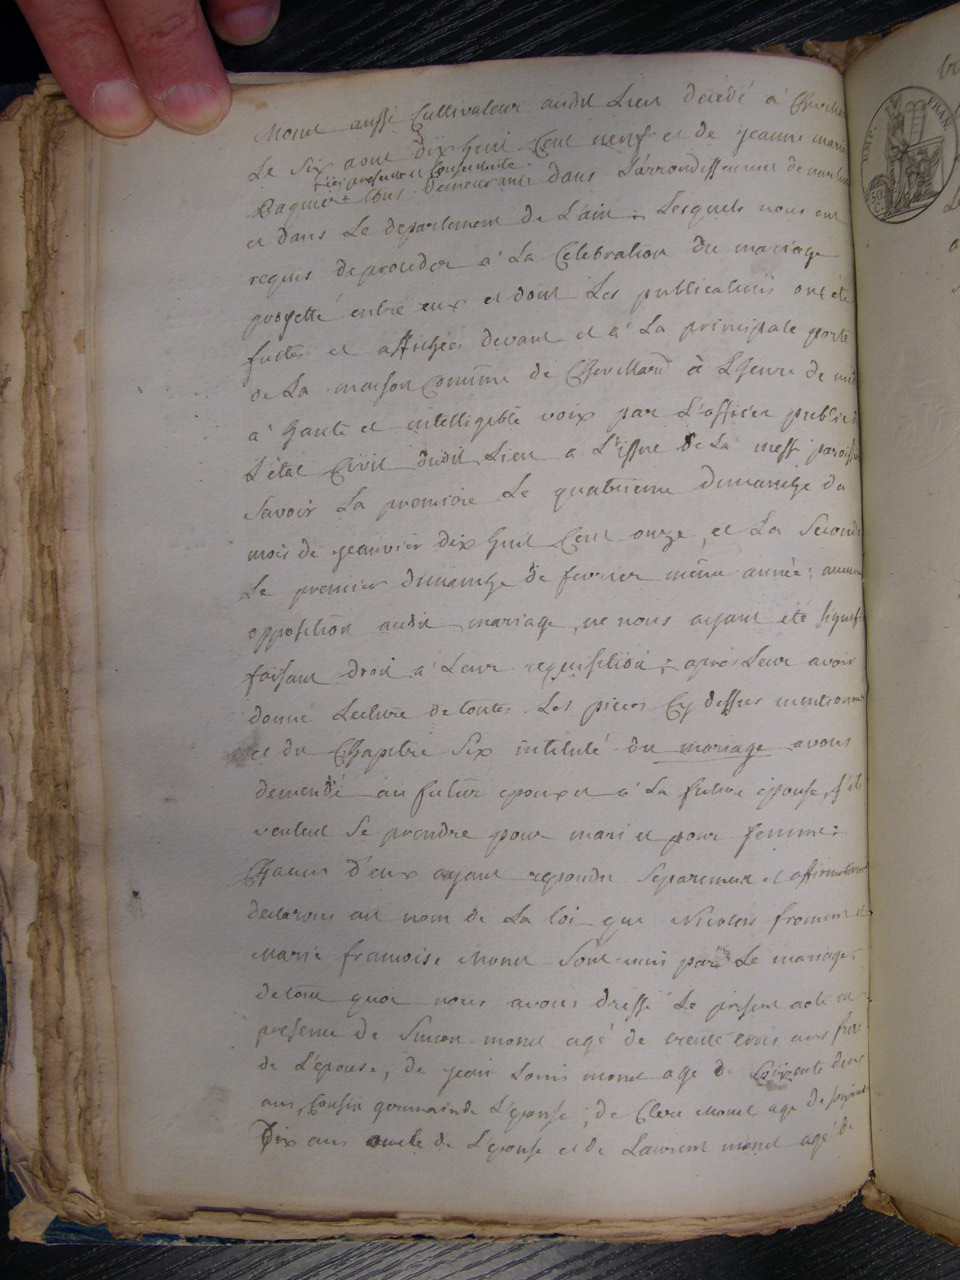 Monet aussi Cultivateur audit Lieu décédé à Chevillard
Le Six aout dix huit Cent neuf et de jeanne marie
ici presente et Consentente
Pagnier + tous demeurants dans L'arrondissement de nantua
et dans Le departement de L'ain; Lesquels nous ont
requis de proceder à La Celebration du mariage
projetté entre eux et dont Les publications ont été
faites et affichées devant et à La principale porte
de La maison Comune de Chevillard à L'heure de midi
à haute et intelligible voix par L'officier public de
L'état Civil dudit Lieu a L'issue de La messe paroiss
Savoir La premiere Le quatrieme dimanche du
mois de jeanvier dix huit Cent onze, et La Seconde
Le premier dimanche de fevrier même année; aucune
opposition audit mariage, ne nous ayant été signifi
faisant droit à Leur requisition; après Leur avoir
donné Lecture de toutes Les pieces Cy dessus mentionné
et du Chapitre Six intitulé du mariage avons
demendé au futur epoux et à La future épouse, s'ils
veulent Se prendre pour mari et pour femme;
Chacun d'eux ayant repondu Separement et affirmativement
declarons au nom de La loi que Nicolas froment et
Marie francoise Monet Sont unis par Le mariage.
de tout quoi nous avons dressé Le present acte en
presence de Simon monet agé de trente trois ans frere
de L'épouse, de jean Louis monet age de Soixante deux
ans, Cousin germain de L'épouse; de Claude Monet age de soixante
Dix ans oncle de L'epouse et de Laurent monet agé de
EMP. FRAN
50 C.